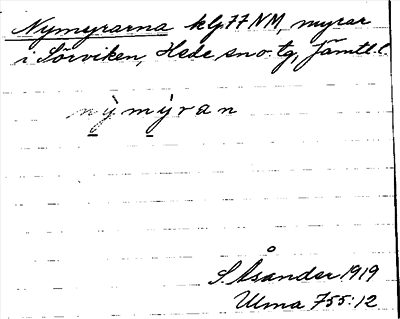 Nymyrarna klg 77 NM, myrar
i Sörviken, Hede sn o. tg, Jämtl. l.
nỳmỳran
S. Åsander 1919
Ulma 755:12